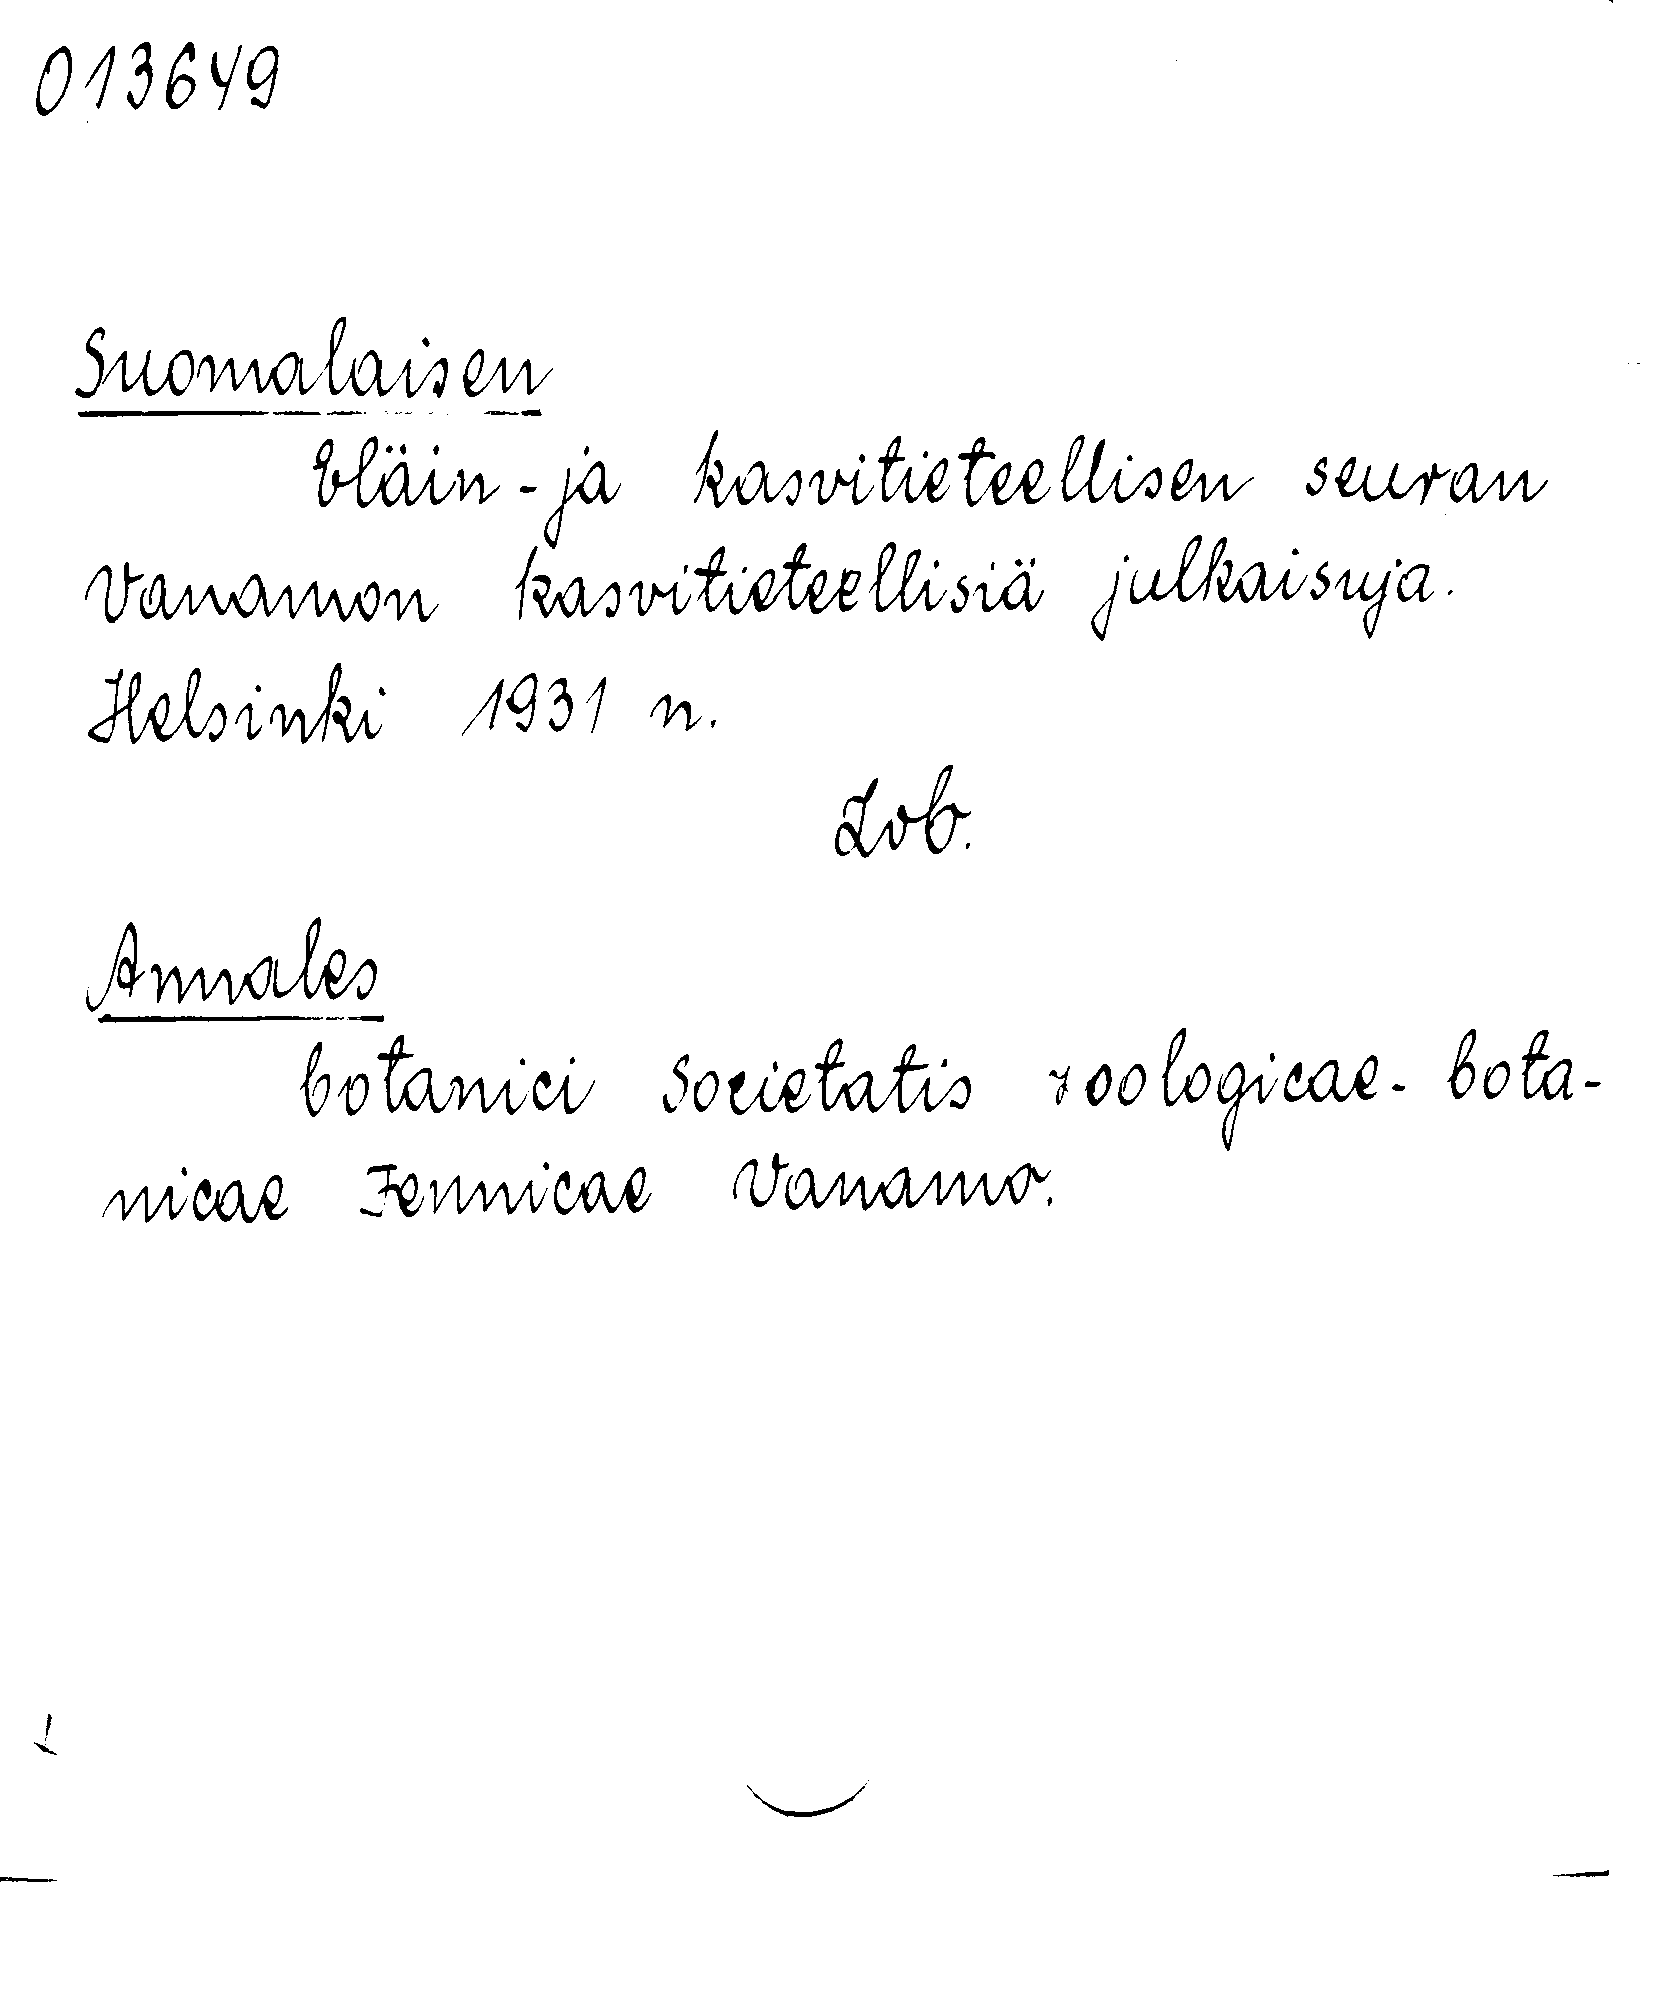 013649
Suomalaisen
Eläin-ja kasvitieteellisen seuran
Vanamon kasvitieteellisiä julkaisuja.
Helsinki 1931 n.
Zob.
Annales
botanici Societatis zoologicae-bota-
nicae Fennicae Vanamo.